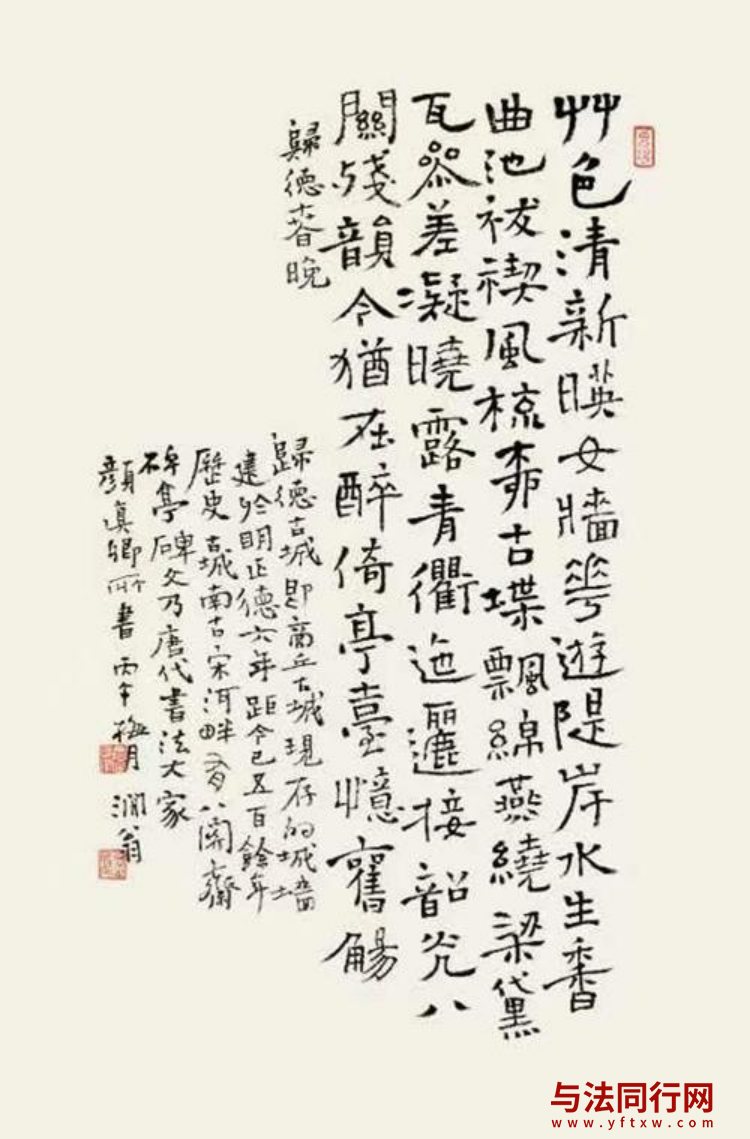 艸色清新暎女牆華遊隄岸水生香
曲池祓禊風梳柳古堞飄綿燕繞梁黛
瓦參差凝曉露青衢迤邐接韶光八
關殘韻今猶在醉倚亭臺憶舊觴
歸德春晚
歸德古城即商丘古城現存的城墙
建於明正德六年距今已五百餘年
歷史古城南古宋河畔有八關齋
碑亭碑文乃唐代書法大家
顏真卿所書丙午梅月澗翁
与法同行网
www.yftxw.com